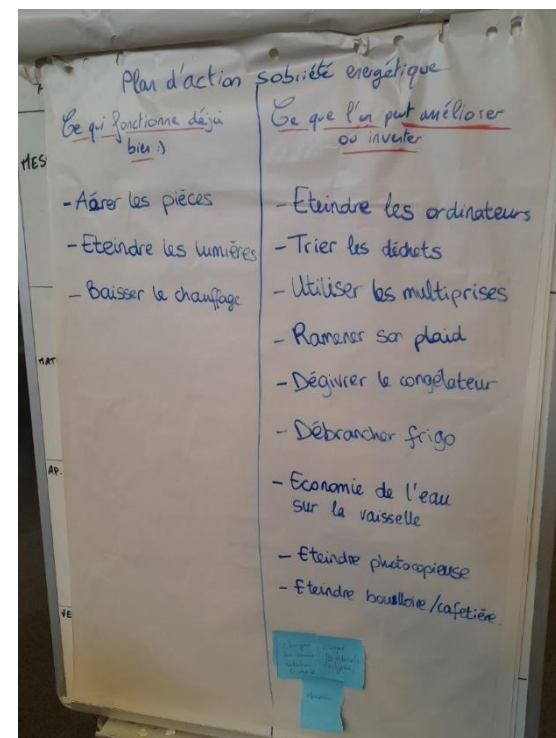 Plan d'action sobriété energétique
Ce qui fonctionne déjà
bien :)
- Aérer les pièces
- Eteindre les lumières
- Baisser le chauffage
Ce que l'on peut améliorer
ou inventer
- Eteindre les ordinateurs
- Trier les déchets
- Utiliser les multiprises
- Ramener son plaid
- Dégivrer le congélateur
- Débrancher frigo
- Economie de l'eau
sur la vaisselle
- Eteindre photocopieuse
- Eteindre bouilloire/cafetière.
MES
MAT
AP.
VE